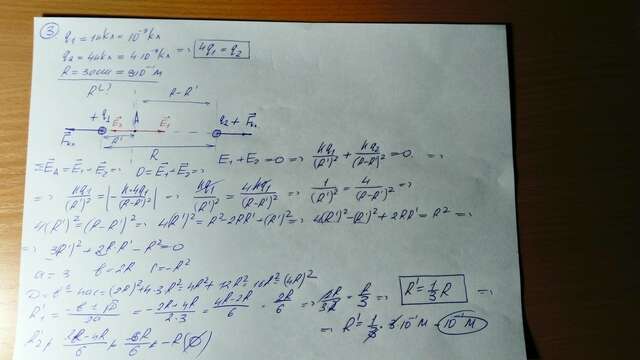 ③
q₁ = 1нКл = 10⁻⁹Кл
q₂ = 4нКл = 4·10⁻⁹Кл => 4q₁ = q₂
R = 30см = 3·10⁻¹м
R' (-)
R-R'
+q₁ E₂ A E₁ q₂+
R'
R
ΣE_A = E₁ + E₂ => 0 = E₁ + E₂ => E₁ + E₂ = 0 => kq₁/(R')² + kq₂/(R-R')² = 0 =>
=> kq₁/(R')² = |-k·4q₁/(R-R')²| => kq₁/(R')² = 4kq₁/(R-R')² => 1/(R')² = 4/(R-R')² =>
4(R')² = (R-R')² => 4(R')² = R² - 2RR' + (R')² => 4(R')² - (R')² + 2RR' = R² =>
=> 3R'² + 2R·R' - R² = 0
a = 3 b = 2R c = -R²
D = b² - 4ac = (2R)² + 4·3·R² = 4R² + 12R² = 16R² = (4R)²
R'₁ = (-b ± √D)/2a = (-2R + 4R)/(2·3) = (4R - 2R)/6 = 2R/6 => R/3 => R' = 1/3 R =>
=> R' = 1/3 · 3·10⁻¹м = 10⁻¹м
R'₂ = -R (∅)